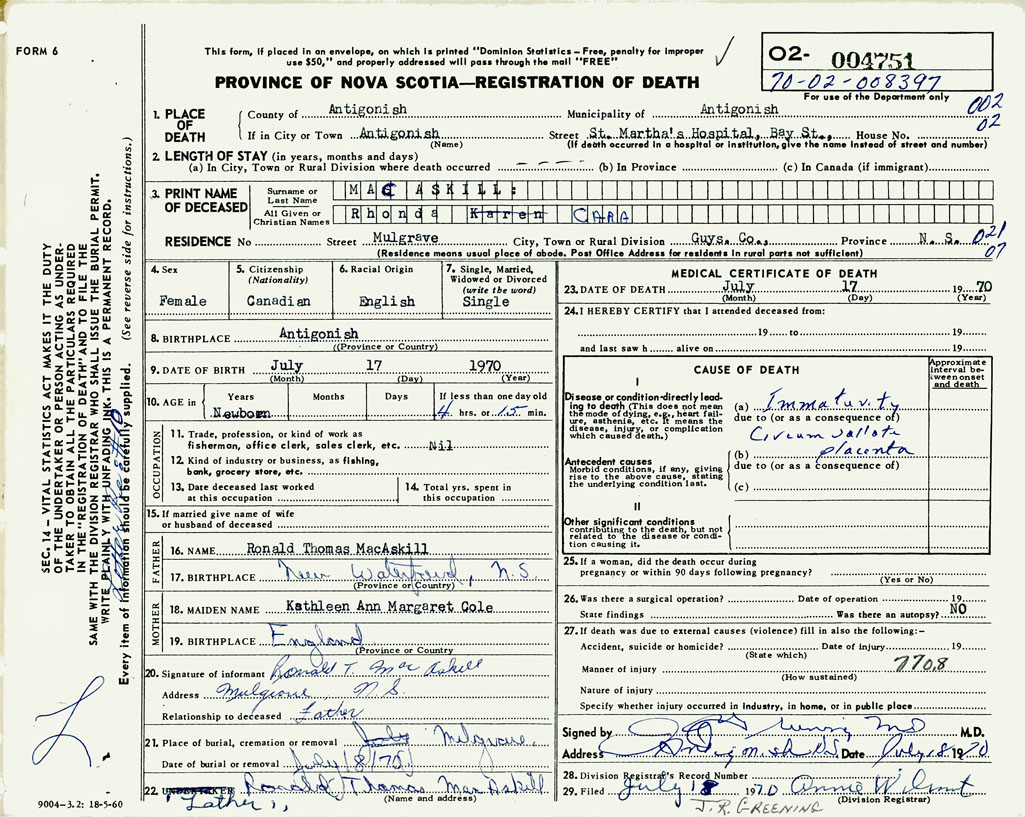 FORM 6
This form, if placed in an envelope, on which is printed "Dominion Statistics – Free, penalty for improper
use $50," and properly addressed will pass through the mail "FREE"
PROVINCE OF NOVA SCOTIA—REGISTRATION OF DEATH
O2- 004751
70-02-008397
For use of the Department only
002
02
1. PLACE OF DEATH
County of Antigonish Municipality of Antigonish
If in City or Town Antigonish Street St. Martha's Hospital, Bay St., House No.
(Name) (If death occurred in a hospital or institution, give the name instead of street and number)
2. LENGTH OF STAY (in years, months and days)
(a) In City, Town or Rural Division where death occurred (b) In Province (c) In Canada (if immigrant)
3. PRINT NAME OF DECEASED
Surname or Last Name MAC ASKILL:
All Given or Christian Names Rhonda Karen CARA
RESIDENCE No Street Mulgrave City, Town or Rural Division Guys. Co., Province N. S. 021
07
(Residence means usual place of abode. Post Office Address for residents in rural parts not sufficient)
4. Sex
Female
5. Citizenship
(Nationality)
Canadian
6. Racial Origin
English
7. Single, Married,
Widowed or Divorced
(write the word)
Single
8. BIRTHPLACE Antigonish
((Province or Country)
9. DATE OF BIRTH July 17 1970
(Month) (Day) (Year)
10. AGE in Years Months Days If less than one day old
Newborn 4 hrs. or 15 min.
OCCUPATION
11. Trade, profession, or kind of work as
fisherman, office clerk, sales clerk, etc. Nil
12. Kind of industry or business, as fishing,
bank, grocery store, etc.
13. Date deceased last worked
at this occupation
14. Total yrs. spent in
this occupation
15. If married give name of wife
or husband of deceased
FATHER
16. NAME Ronald Thomas MacAskill
17. BIRTHPLACE New Waterford, N.S.
(Province or Country)
MOTHER
18. MAIDEN NAME Kathleen Ann Margaret Cole
19. BIRTHPLACE England
(Province or Country
20. Signature of informant Ronald T. Mac Askill
Address Mulgrave, N.S.
Relationship to deceased Father
21. Place of burial, cremation or removal July Mulgrave,
Date of burial or removal July 18/70.
22. UNDERTAKER Ronald Thomas Mac Askill
(Name and address)
"Father"
9004–3.2: 18-5-60
MEDICAL CERTIFICATE OF DEATH
23. DATE OF DEATH July 17 1970
(Month) (Day) (Year)
24. I HEREBY CERTIFY that I attended deceased from:
19 to 19
and last saw h alive on 19
CAUSE OF DEATH
Approximate
interval be-
tween onset
and death
I
Disease or condition directly lead-
ing to death (This does not mean
the mode of dying, e.g., heart fail-
ure, asthenia, etc. It means the
disease, injury, or complication
which caused death.)
(a) Immaturity
due to (or as a consequence of)
Circumvallate
(b) placenta
due to (or as a consequence of)
(c)
Antecedent causes
Morbid conditions, if any, giving
rise to the above cause, stating
the underlying condition last.
II
Other significant conditions
contributing to the death, but not
related to the disease or condi-
tion causing it.
25. If a woman, did the death occur during
pregnancy or within 90 days following pregnancy?
(Yes or No)
26. Was there a surgical operation? Date of operation 19
State findings Was there an autopsy? NO
27. If death was due to external causes (violence) fill in also the following:–
Accident, suicide or homicide? Date of injury 19
(State which)
Manner of injury 7708
(How sustained)
Nature of injury
Specify whether injury occurred in Industry, in home, or in public place
Signed by MD M.D.
Address Antigonish NS Date July 18 1970
28. Division Registrar's Record Number
29. Filed July 18 1970 Annie Wilmot
(Division Registrar)
J.R. GREENING
SEC. 14 – VITAL STATISTICS ACT MAKES IT THE DUTY
OF THE UNDERTAKER OR PERSON ACTING AS UNDER-
TAKER TO OBTAIN ALL THE PARTICULARS REQUIRED
IN THE "REGISTRATION OF DEATH" AND TO FILE THE
SAME WITH THE DIVISION REGISTRAR WHO SHALL ISSUE THE BURIAL PERMIT.
WRITE PLAINLY WITH UNFADING INK. THIS IS A PERMANENT RECORD.
Every item of information should be carefully supplied. (See reverse side for instructions.)